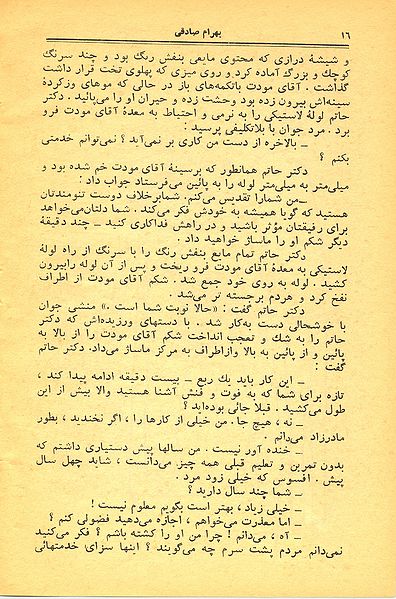 ۱۶ بهرام صادقی
و شیشهٔ درازی که محتوی مایعی بنفش رنگ بود و چند سرنگ
کوچك و بزرگ آماده کرد و روی میزی که پهلوی تخت قرار داشت
گذاشت. آقای مودت باتکمه‌های باز در حالی که موهای وزکردهٔ
سینه‌اش بیرون زده بود وحشت زده و حیران او را می‌پائید. دکتر
حاتم لولهٔ لاستیکی را به نرمی و احتیاط به معدهٔ آقای مودت فرو
برد. مرد جوان با بلاتکلیفی پرسید:
ـ بالاخره از دست من کاری بر نمی‌آید؟ نمی‌توانم خدمتی
بکنم؟
دکتر حاتم همانطور که برسینهٔ آقای مودت خم شده بود و
میلی‌متر به میلی‌متر لوله را به پائین می‌فرستاد جواب داد:
ـ من شمارا تقدیس می‌کنم. شمابرخلاف دوست تنومندتان
هستید که گویا همیشه به خودش فکر می‌کند. شما دلتان‌می‌خواهد
برای رفیقتان مؤثر باشید و در راهش فداکاری کنید ـ چند دقیقهٔ
دیگر شکم او را ماساژ خواهید داد.
دکتر حاتم تمام مایع بنفش رنگ را با سرنگ از راه لولهٔ
لاستیکی به معدهٔ آقای مودت فرو ریخت و پس از آن لوله رابیرون
کشید. لوله به روی خود جمع شد. شکم آقای مودت از اطراف
نفخ کرد و هردم برجسته تر می‌شد.
دکتر حاتم گفت: «حالا نوبت شما است.» منشی جوان
با خوشحالی دست به‌کار شد. با دستهای ورزیده‌اش که دکتر
حاتم را به شك و تعجب انداخت شکم آقای مودت را از بالا به
پائین و از پائین به بالا وازاطراف به مرکز ماساژ می‌داد. دکتر حاتم
گفت:
ـ این کار باید یك ربع ـ بیست دقیقه ادامه پیدا کند،
تازه برای شما که به فوت و فنش آشنا هستید والا بیش از این
طول می‌کشید. قبلا جائی بوده‌اید؟
ـ نه، هیچ جا. من خیلی از کارها را، اگر نخندید، بطور
مادرزاد می‌دانم.
ـ خنده آور نیست. من سالها پیش دستیاری داشتم که
بدون تمرین و تعلیم قبلی همه چیز می‌دانست، شاید چهل سال
پیش. افسوس که خیلی زود مرد.
ـ شما چند سال دارید؟
ـ خیلی زیاد، بهتر است بگویم معلوم نیست!
ـ اما معذرت می‌خواهم، اجازه می‌دهید فضولی کنم؟
ـ آه، می‌دانم! چرا من او را کشته باشم؟ فکر می‌کنید
نمی‌دانم مردم پشت سرم چه می‌گویند؟ اینها سزای خدمتهائی